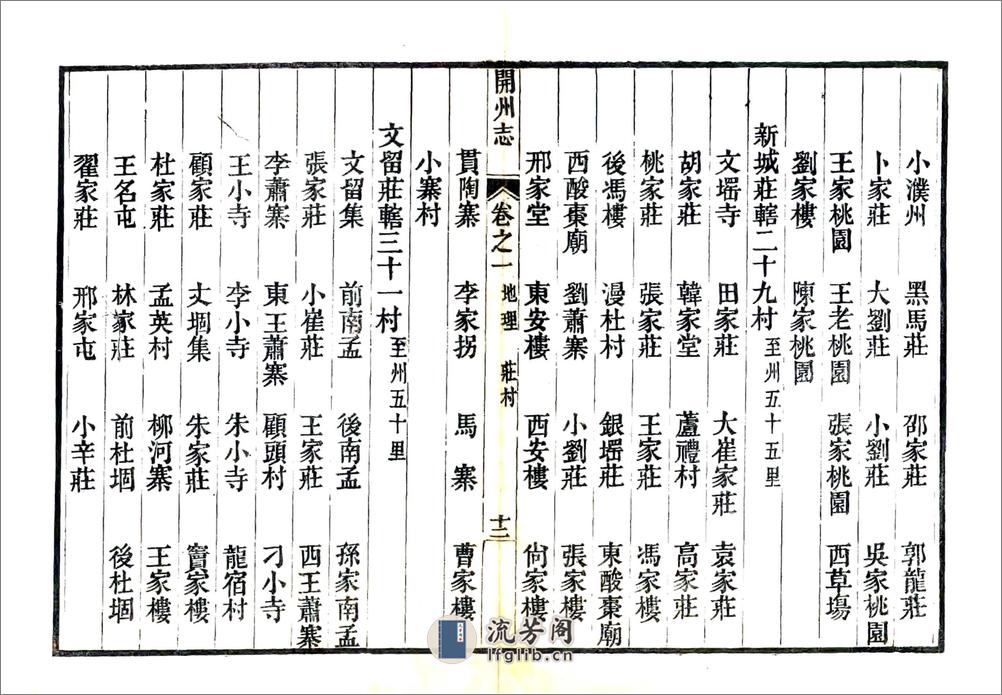 小濮州　黑馬莊　邵家莊　郭龍莊
卜家莊　大劉莊　小劉莊　吳家桃園
王家桃園　王老桃園　張家桃園　西草塲
劉家樓　陳家桃園
新城莊轄二十九村至州五十五里
文塯寺　田家莊　大崔家莊　袁家莊
胡家莊　韓家堂　蘆禮村　高家莊
桃家莊　張家莊　王家莊　馮家樓
後馮樓　漫杜村　銀塯莊　東酸棗廟
西酸棗廟　劉蕭寨　小劉莊　張家樓
邢家堂　東安樓　西安樓　尙家樓
開州志　卷之一　地理　莊村　十二
貫陶寨　李家拐　馬寨　曹家樓
小寨村
文留莊轄三十一村至州五十里
文留集　前南孟　後南孟　孫家南孟
張家莊　小崔莊　王家莊　西王蕭寨
李蕭寨　東王蕭寨　顧頭村　刁小寺
王小寺　李小寺　朱小寺　龍宿村
顧家莊　丈堌集　朱家莊　竇家樓
杜家莊　孟英村　柳河寨　王家樓
王名屯　林家莊　前杜堌　後杜堌
翟家莊　邢家屯　小辛莊
流芳阁
lfglib.cn